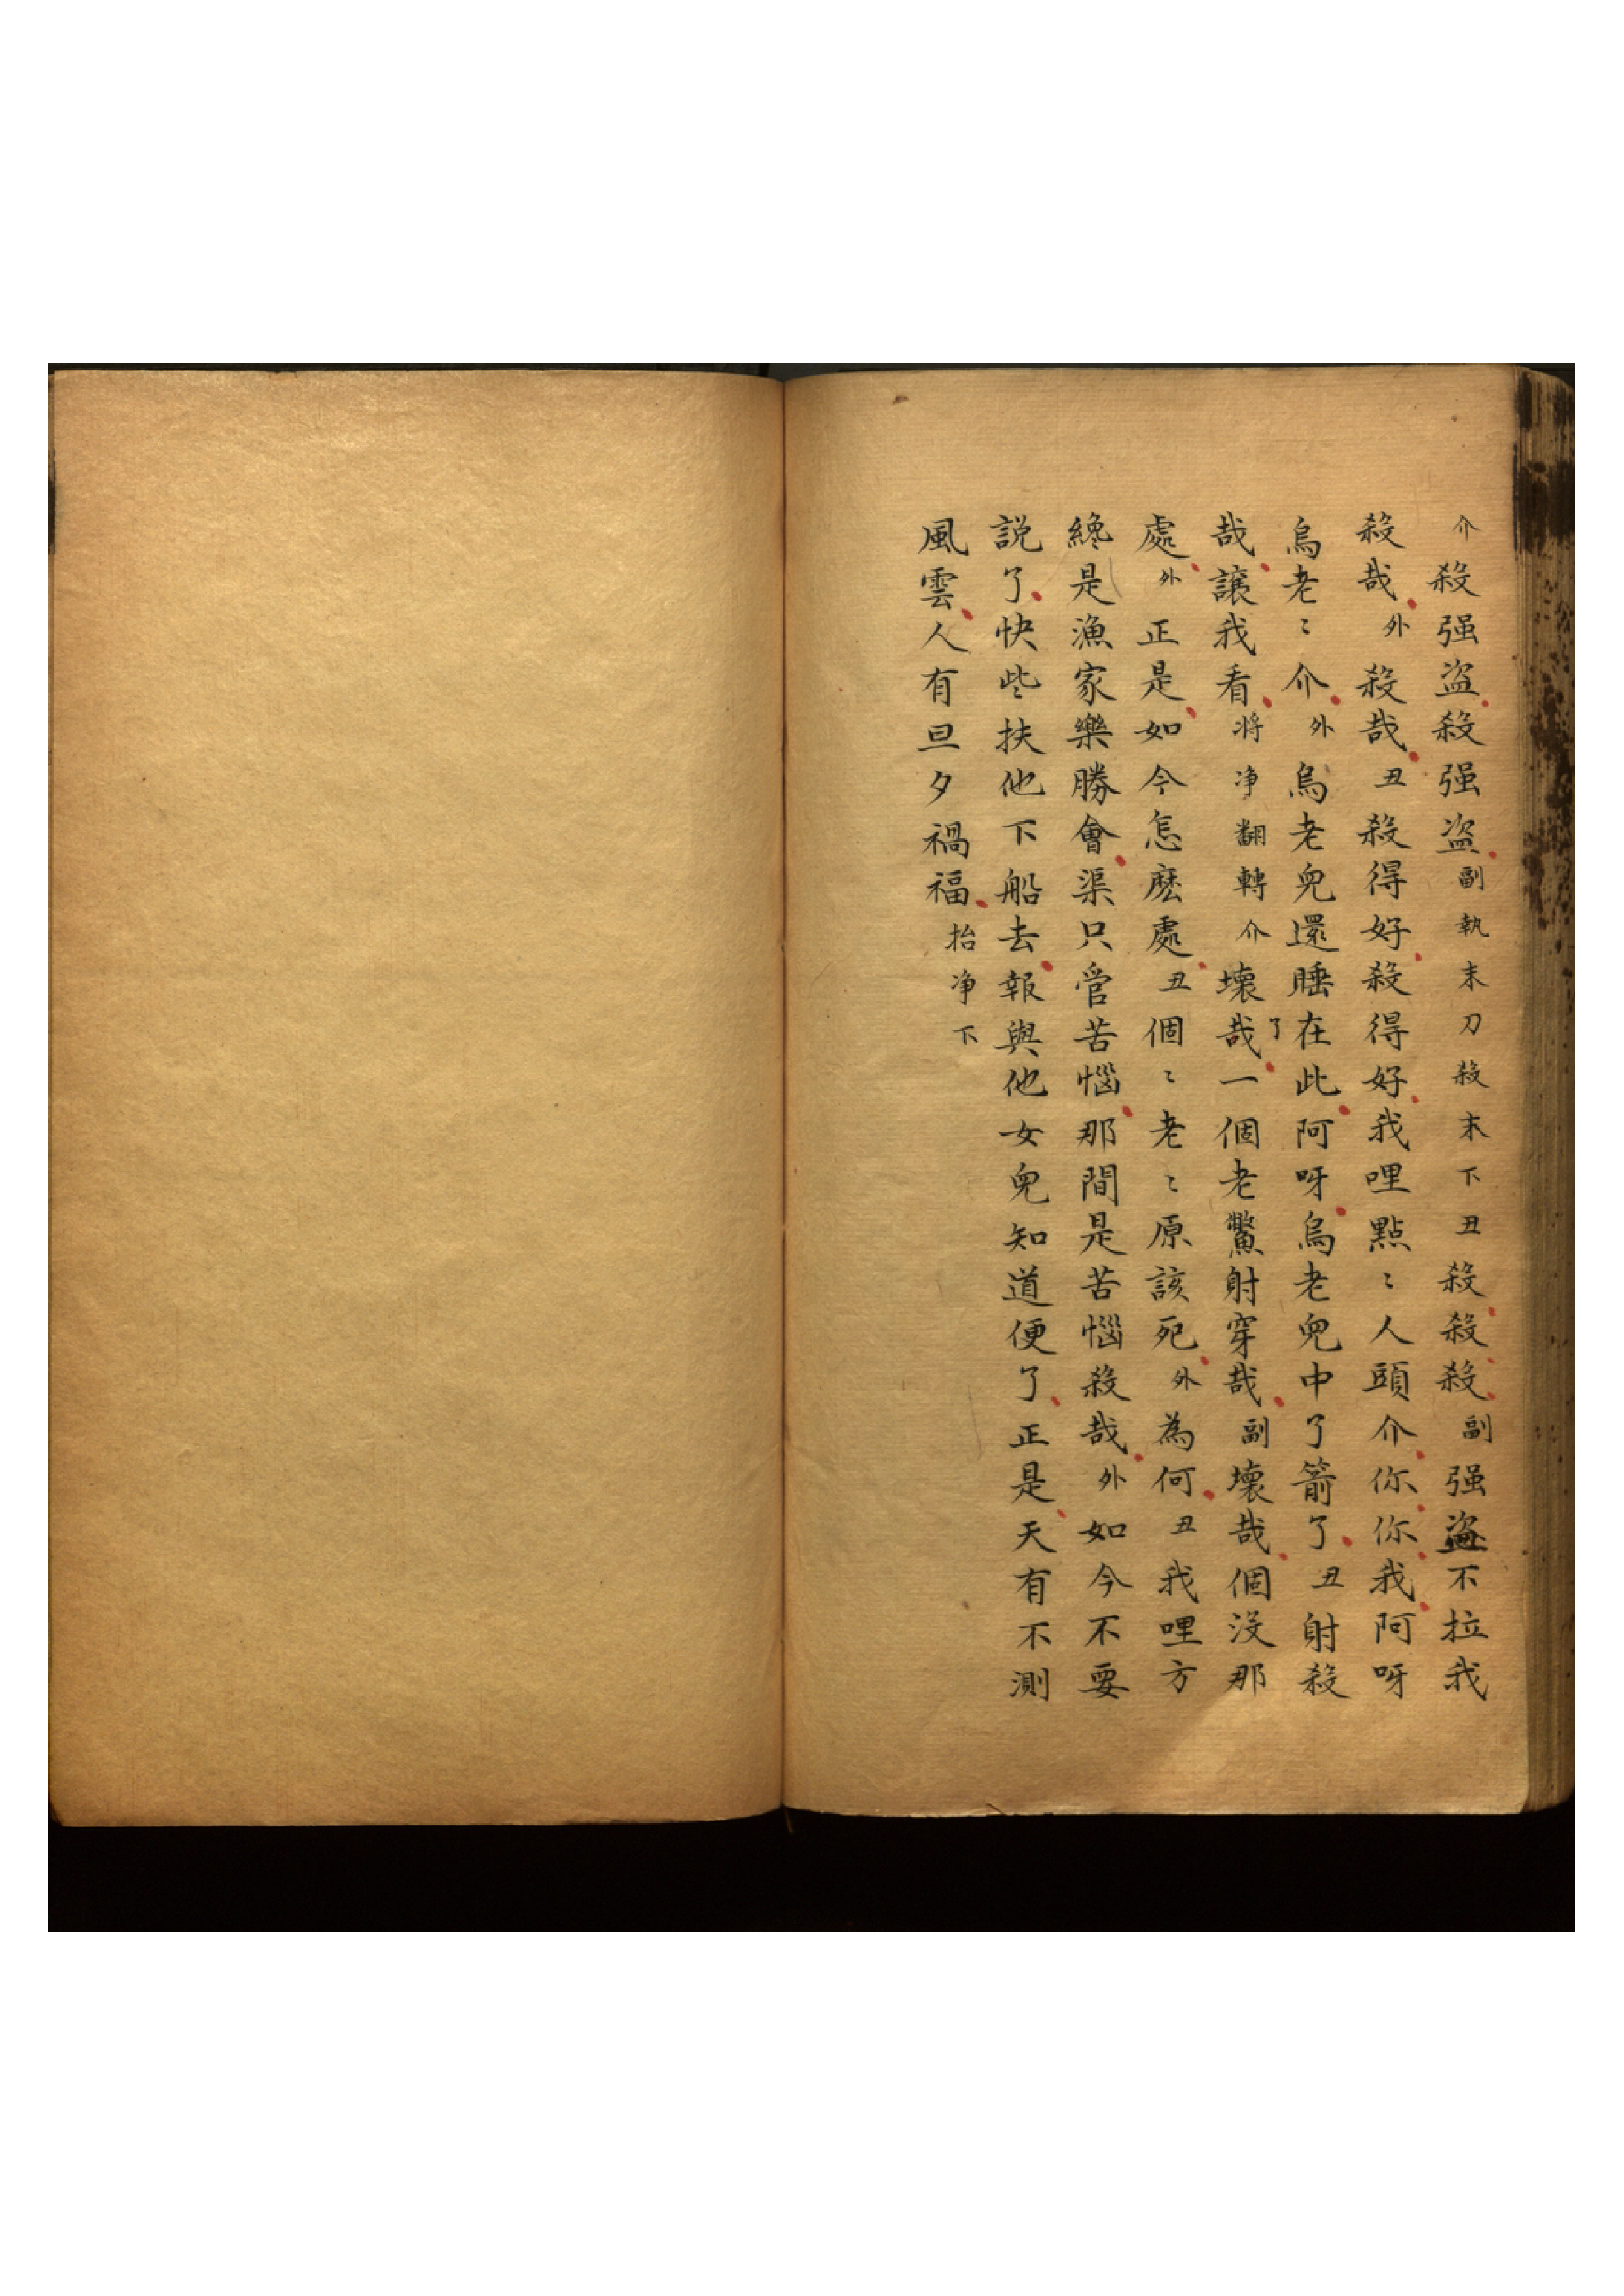 介殺强盗殺强盗副執末刀殺末下丑殺殺殺副强盗不拉我
殺哉外殺哉丑殺得好殺得好我哩點〻人頭介你你我阿呀
烏老〻介外烏老兒還睡在此阿呀烏老兒中了箭了丑射殺
哉讓我看將净翻轉介壞哉了一個老鱉射穿哉副壞哉個沒那
處外正是如今怎麽處丑個〻老〻原該死外為何丑我哩方
纔是漁家樂勝會渠只管苦惱那間是苦惱殺哉外如今不要
説了快些扶他下船去報與他女兒知道便了正是天有不測
風雲人有旦夕禍福抬净下